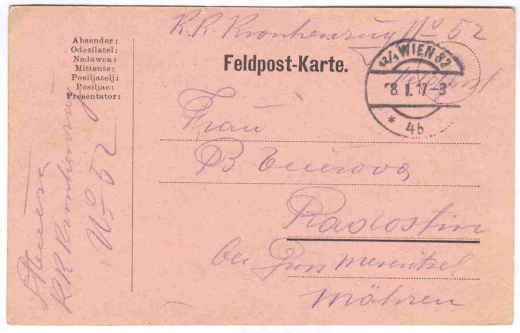 K.K. Krankenzug No 52
Absender:
Odesilatel:
Nadawca:
Mittente:
Posiljatelj:
Posiljac:
Presentator:
Feldpost-Karte.
12/1 WIEN 82
8. I. 17-3
* 4b
Frau
Radostin
bei Gross Meseritsch
Mähren
KK Krankenzug
No 52